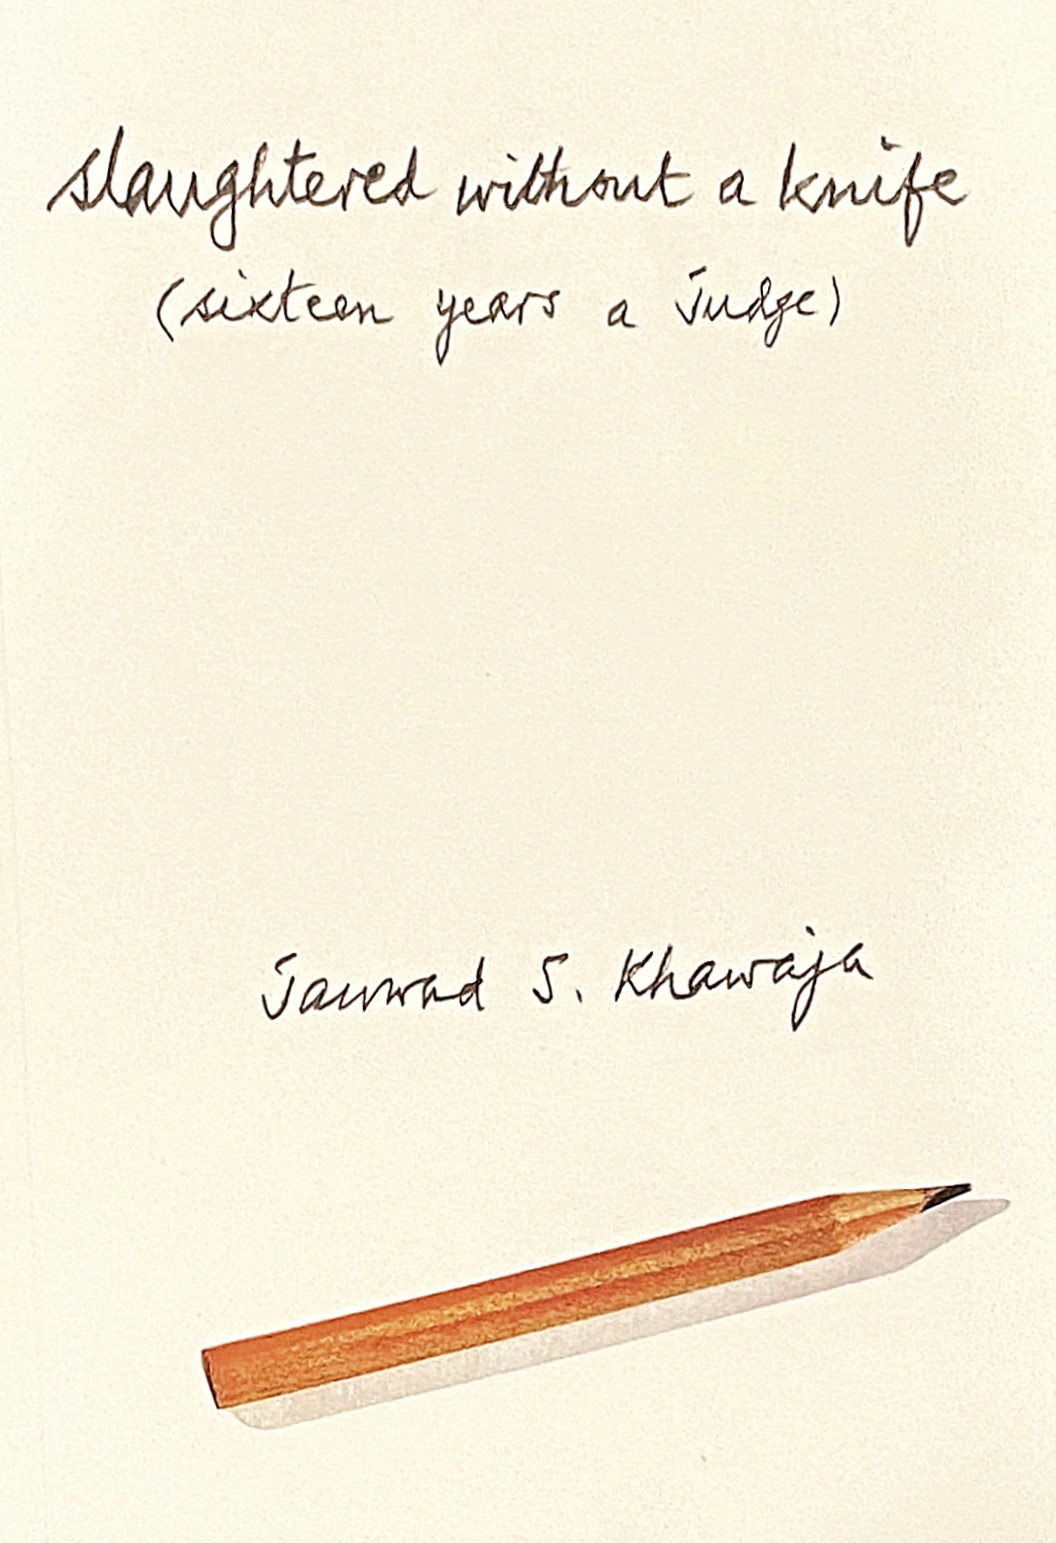 slaughtered without a knife
(sixteen years a judge)
Jawwad S. Khawaja